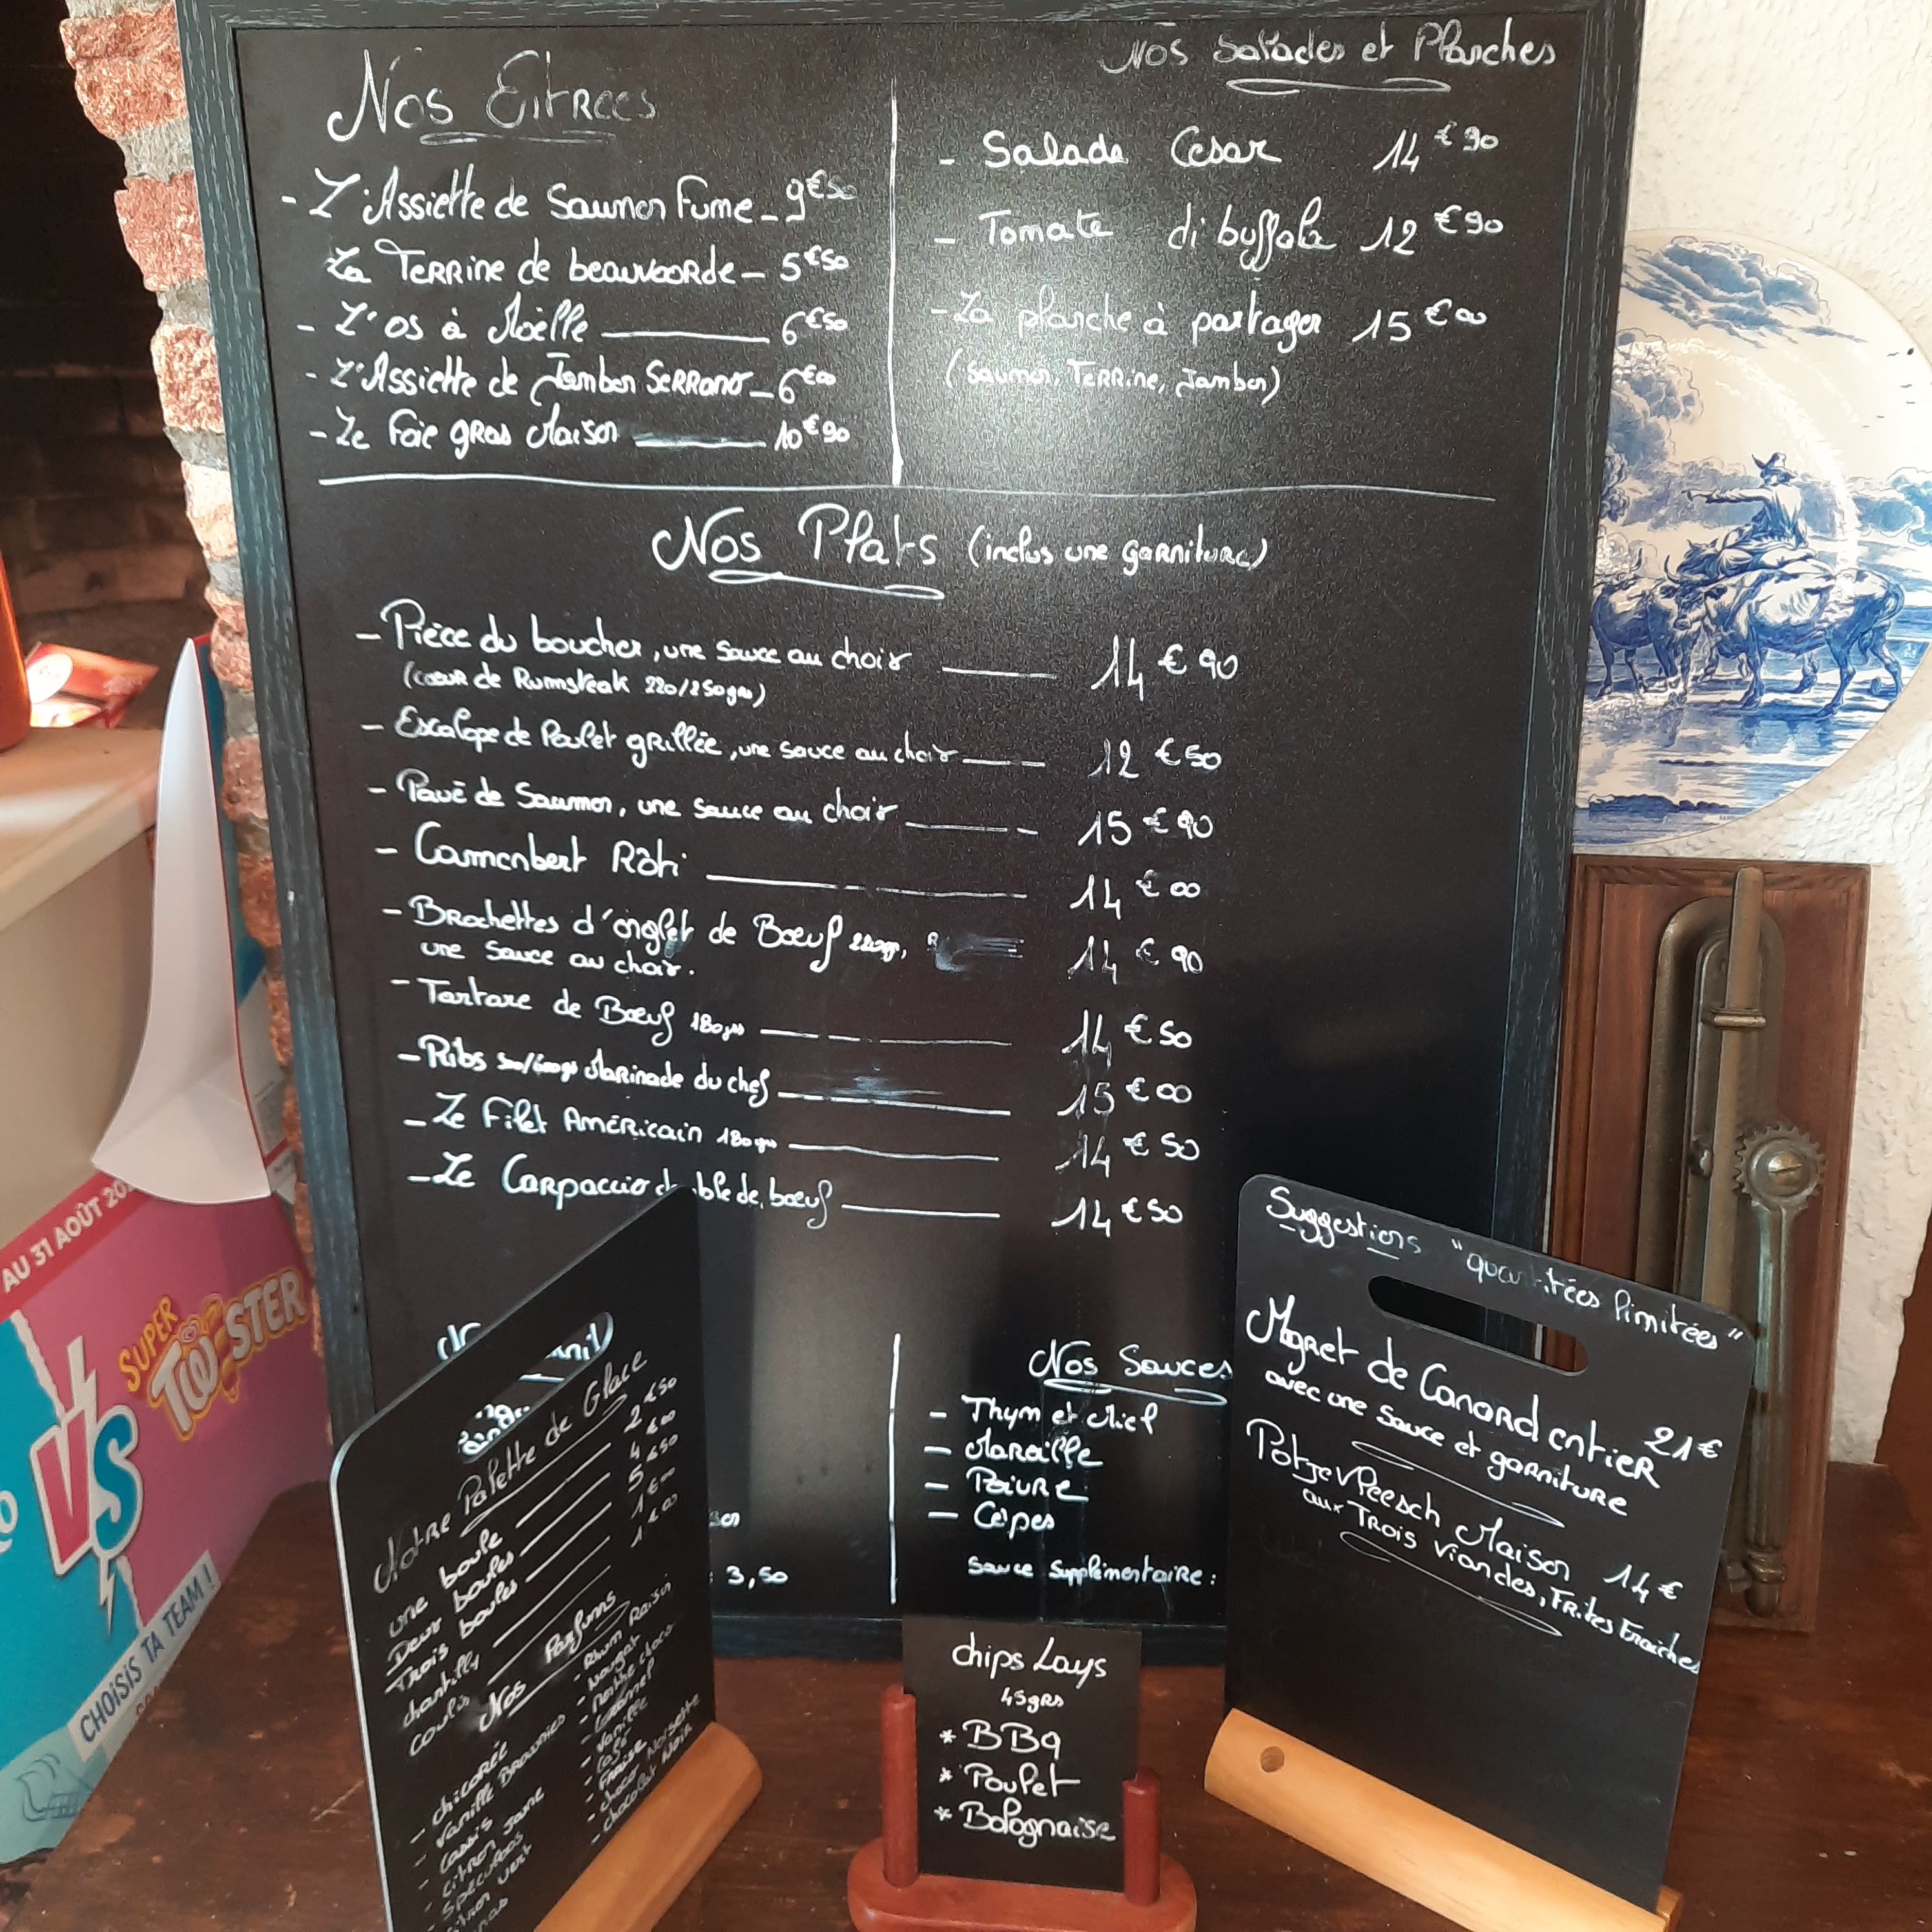 Nos Entrées
- L'Assiette de Saumon Fume - 9€50
La Terrine de beauvoorde - 5€50
- L'os à Moëlle 6€50
- L'Assiette de Jambon Serrano - 6€00
- Le Foie gras Maison 10€90
Nos Salades et Planches
- Salade Cesar 14€90
- Tomate di buffala 12€90
- La planche à partager 15€00
(Saumon, Terrine, Jambon)
Nos Plats (inclus une garniture)
- Pièce du boucher, une sauce au choix 14€90
(cœur de Rumsteak 220/250grs)
- Escalope de Poulet grillée, une sauce au choix 12€50
- Pavé de Saumon, une sauce au choix 15€90
- Camenbert Rôti 14€00
- Brochettes d'onglet de Bœuf 220gr, 14€90
une sauce au choix.
- Tartare de Bœuf 180grs 14€50
- Ribs 500/600grs Marinade du chef 15€00
- Le Filet Américain 180grs 14€50
- Le Carpaccio de bœuf 14€50
: 3,50
Nos Sauces
- Thym et Miel
- Maroille
- Poivre
- Cèpes
Sauce Supplémentaire :
Notre Palette de Glace
une boule 2€50
Deux boules 4€00
Trois boules 5€50
chantilly 1€00
coulis 1€00
Nos Parfums
- chicorée
- vanille Brownies
- Cassis
- citron jaune
- Spéculoos
- citron vert
- Rhum Raisin
- Nougat
- Menthe choco
- Caramel
- Vanille
- Café
- Fraise
- choco Noisette
- chocolat Noir
chips Lays
45grs
* BBq
* Poulet
* Bolognaise
Suggestions "quantitées limitées"
Magret de Canard entier 21€
avec une sauce et garniture
Potjevleesch Maison 14€
aux Trois viandes, Frites Fraiches
AU 31 AOÛT
VS
SUPER
TWISTER
CHOISIS TA TEAM !